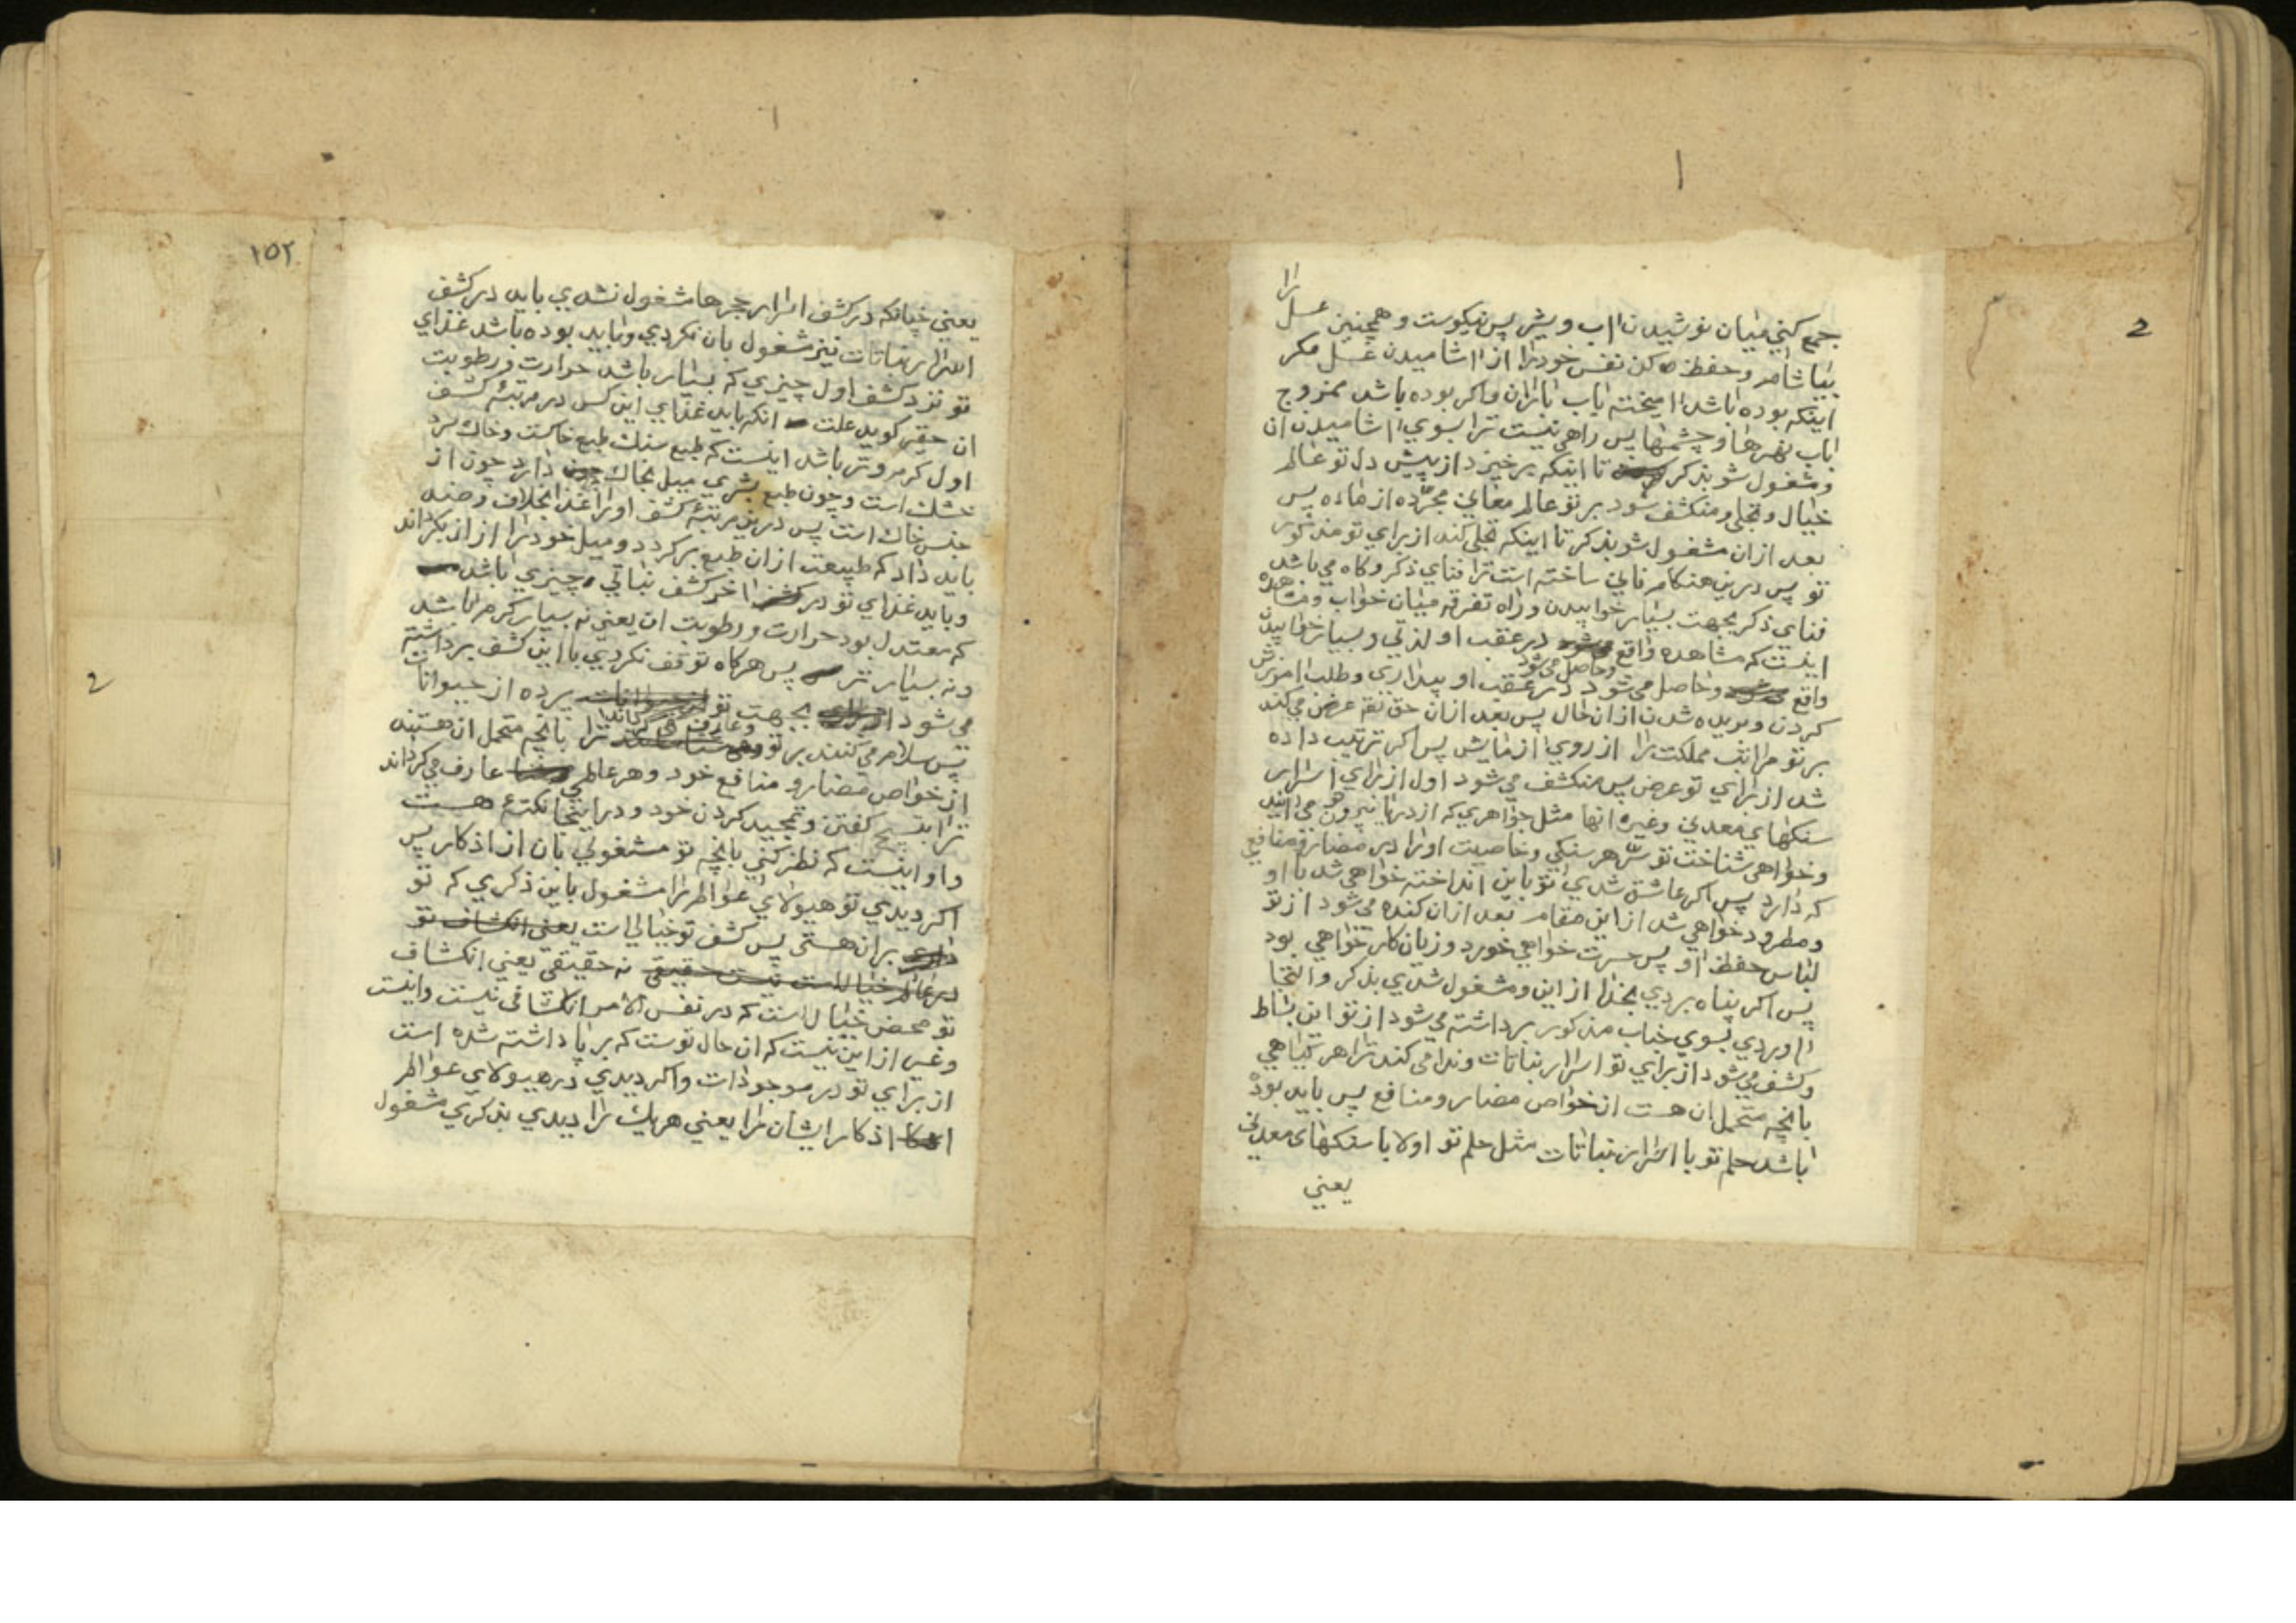 2
را
جمع کني ميان نوشيدن اب و شير پس نيکوست و همچنين عسل
بياشام و حفظ کن نفس خود را از اشاميدن عسل مکر
اينکه بوده باشد اميخته باب باران و اکر بوده باشد ممزوج
باب نهرها و چشمها پس راهي نيست ترا بسوي اشاميدن ان
و مشغول شو بذکر تا اينکه برخيزد از پيش دل تو عالم
خيال و تجلي و منکشف شود بر تو عالم معاني مجرده از ماده پس
بعد ازان مشغول شو بذکر تا اينکه تجلي کند از براي تو مذکور
تو پس درين هنکام فاني ساخته است ترا فناي ذکر و کاه مي باشد
فناي ذکر بجهت بسيار خوابيدن و راه تفرقه ميان خواب و مشاهده
اينست که مشاهده واقع در عقب او لذتي و بسيار خوابيدن
و حاصل مي شود
واقع و حاصل مي شود در عقب او بيداري و طلب امرزش
کردن و بريده شدن ازان حال پس بعد ازان حق تع عرض مي کند
بر تو مراتب مملکت را از روي ازمايش پس اکر ترتيب داده
شد از براي تو عرض پس منکشف مي شود اول از براي اسرار
سنکهاي معدني و غيره انها مثل جواهري که از دريا بيرون مي ايند
و خواهي شناخت تو سر هر سنکي و خاصيت او را در مضار و منافعي
که دارد پس اکر عاشق شدي تو باين انداخته خواهي شد با او
و مطرود خواهي شد از اين مقام بعد ازان کنده مي شود از تو
لباس حفظ او پس حسرت خواهي خورد و زيان کار خواهي بود
پس اکر پناه بردي بخدا از اين و مشغول شدي بذکر و التجا
اوردي بسوي جناب مذکور برداشته مي شود از تو اين بساط
و کشف مي شود از براي تو اسرار نباتات و ندا مي کند ترا هر کياهي
بانچه متحمل ان هست از خواص مضار و منافع پس بايد بوده
باشد حلم تو با اسرار نباتات مثل حلم تو اولا با سنکهاي معدني
يعني
١٥٢
يعني چنانکه در کشف اسرار حجرها مشغول نشدي بايد در کشف
اسرار نباتات نيز مشغول بان نکردي و بايد بوده باشد غذاي
تو نزد کشف اول چيزي که بسيار باشد حرارت و رطوبت
ان حقير کويد علت انکه بايد غذاي اين کس در مرتبهٔ کشف
اول کرم و تر باشد اينست که طبع سنک طبع خاکست و خاک سرد
خشک است و چون طبع بشري ميل بخاک دارد چون از
جنس خاک است پس درين مرتبهٔ کشف او را غذا بخلاف و ضد
بايد داد که طبيعت ازان طبع برکردد و ميل خود را ازان بکرداند
و بايد غذاي تو در اخر کشف نباتي چيزي باشد
که معتدل بود حرارت و رطوبت ان يعني نه بسيار کرم باشد
و نه بسيار تر پس هرکاه توقف نکردي با اين کشف برداشته
مي شود بجهت تو پرده از حيوانات
پس سلام مي کنند بر تو و عارف مي کرداند ترا بانچه متحمل ان هستند
از خواص مضار و منافع خود و هر عالمي عارف مي کرداند
ترا بتسبيح کفتن و تمجيد کردن خود و در اينجا نکتهٔ هست
و او اينست که نظر کني بانچه تو مشغولي بان از اذکار پس
اکر ديدي تو هيولاي عوالم را مشغول باين ذکري که تو
بران هستي پس کشف تو خيالي است
نه حقيقي يعني انکشاف
تو محض خيال است که در نفس الامر انکشافي نيست و اينست
و غير از اين نيست که ان حال توست که بر پا داشته شده است
از براي تو در موجودات و اکر ديدي در هيولاي عوالم
اذکار ايشان را يعني هر يک را ديدي بذکري مشغول
2